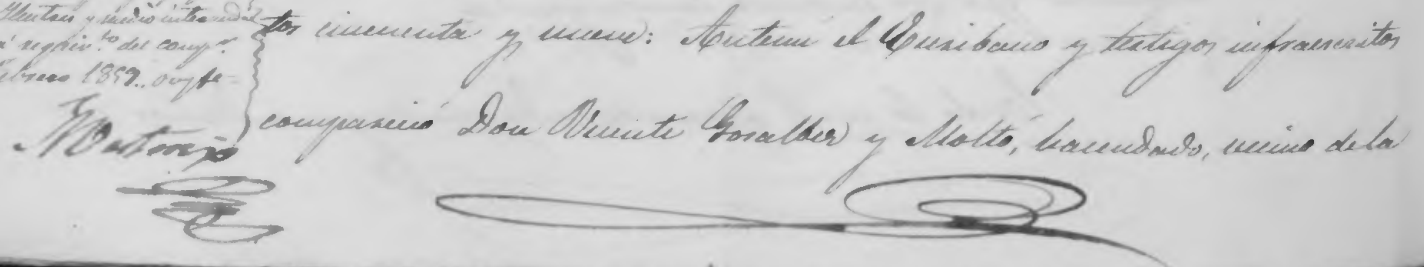 y medio
registº del
1859.. doy fe=
tos cincuenta y nueve: Antemi el Escribano y testigos infraescritos
compareció Don Vicente Gosalbez y Moltó, hacendado, vecino de la